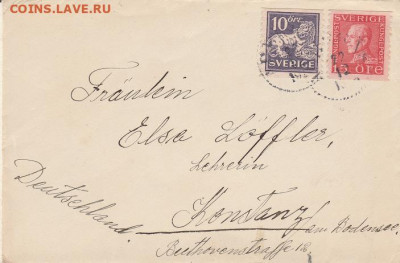 COINS.LAVE.RU
10 ÖRE
SVERIGE
SVERIGE
15 ÖRE
Fräulein
Elsa Löffler,
Lehrerin
Konstanz
am Bodensee.
Beethovenstraße 12
Deutschland.